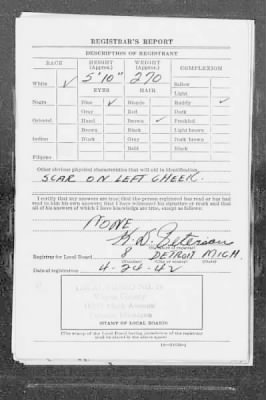 REGISTRAR'S REPORT
DESCRIPTION OF REGISTRANT
RACE HEIGHT (Approx.) WEIGHT (Approx.) COMPLEXION
White ✓ 5'10" 270 Sallow
EYES HAIR Light
Negro Blue ✓ Blonde Ruddy ✓
Gray Red Dark
Oriental Hazel Brown ✓ Freckled
Brown Black Light brown
Indian Black Gray Dark brown
Bald Black
Filipino
Other obvious physical characteristics that will aid in identification
SCAR ON LEFT CHEEK.
I certify that my answers are true; that the person registered has read or has had
read to him his own answers; that I have witnessed his signature or mark and that
all of his answers of which I have knowledge are true, except as follows:
NONE
W. D. Peterson
(Signature of registrar)
Registrar for Local Board 8 DETROIT MICH.
(Number) (City or county) (State)
Date of registration 4-24-42
LOCAL BOARD NO.
Wayne County
Avenue
Detroit, Michigan
(STAMP OF LOCAL BOARD)
(The stamp of the Local Board having jurisdiction of the registrant
shall be placed in the above space.)